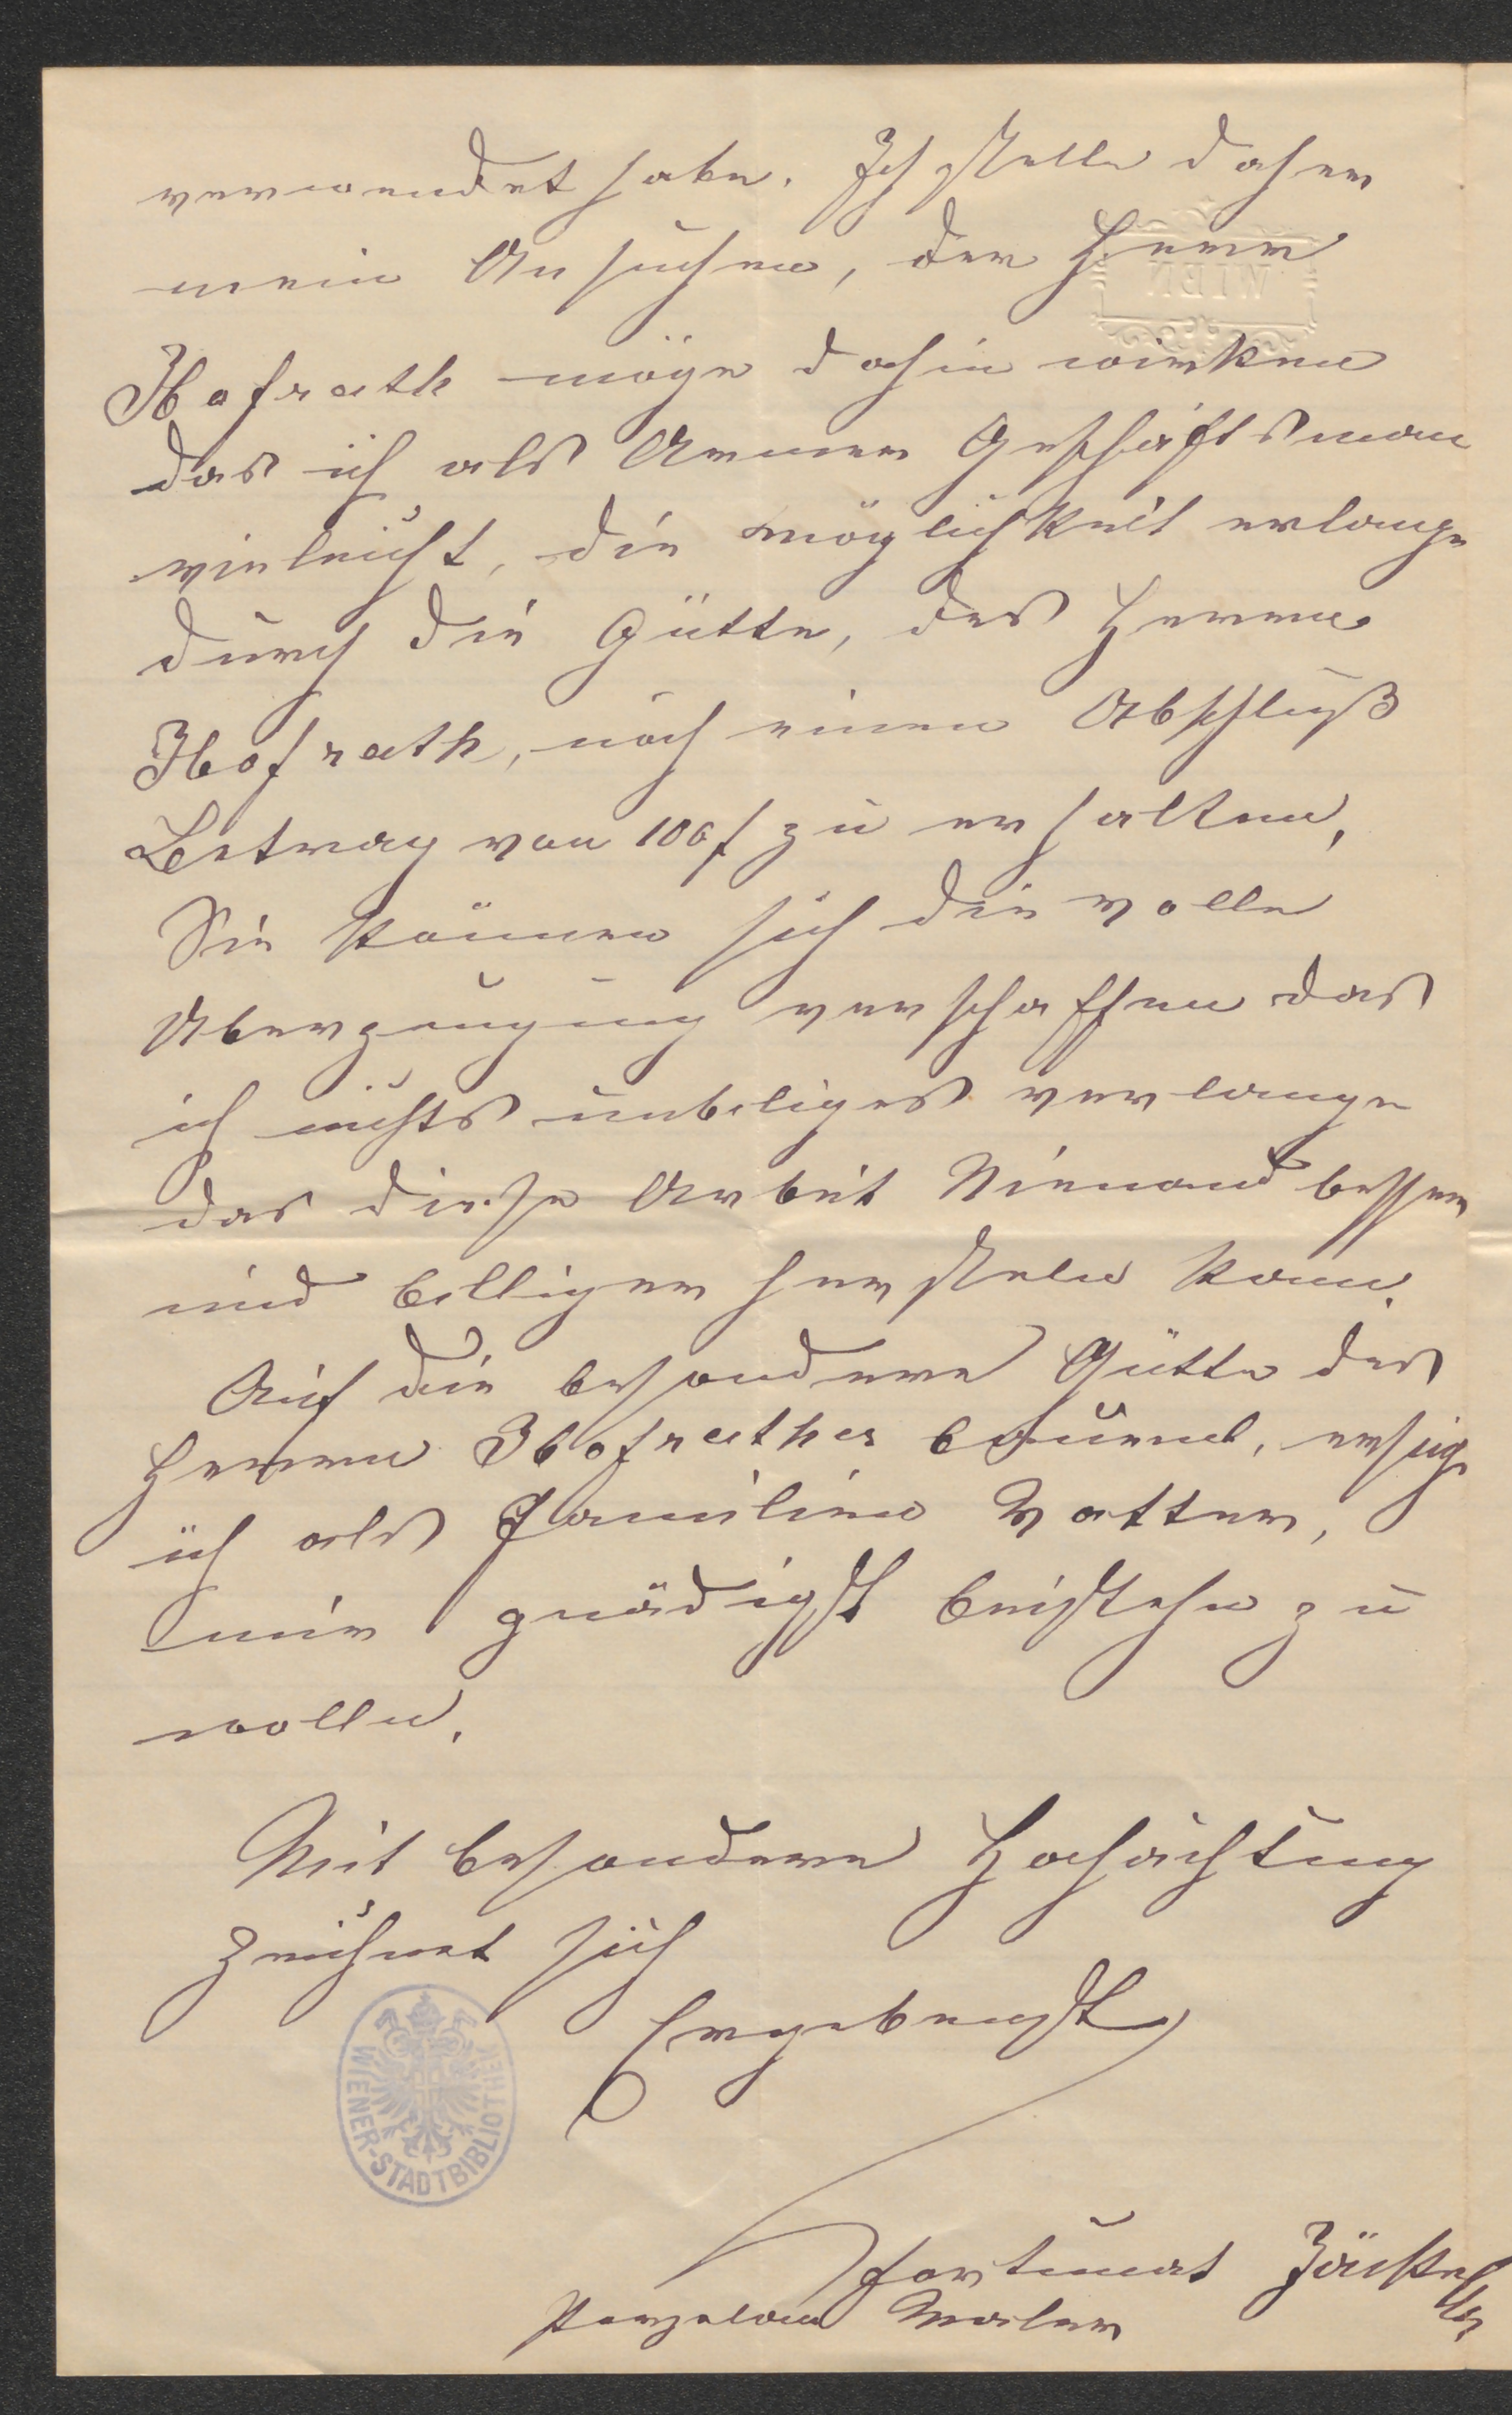 verwendet habe. Ich stelle daher
mein Ansuchen, der Herr
WIEN
Hofrath möge dahin wirken
das ich als Armer Geschäftsman
vieleicht, die möglichkeit erlange
durch die Gütte, des Herrn
Hofrath, noch einen Abschluß
Betrag von 100 f zu erhalten,
Sie können sich die volle
Uberzeugung verschaffen das
ich nichts unbeliges verlange
das diese Arbeit Niemand besser
und billiger herstelen kann.
Auf die besondere Gütte des
Herrn Hofrathes bauend, ersuge
ich als Familien Vatter,
mir gnädigst beistehn zu
wollen.
Mit besonderer Hochachtung
zeichnet sich
Ergebenst
WIENER-STADTBIBLIOTHEK
Fortunat
Porzelan Maler